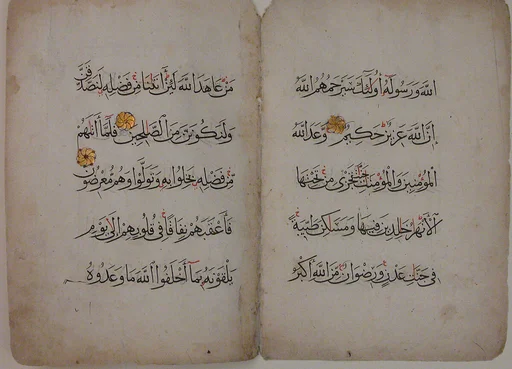 ٱللَّهَ وَرَسُولَهُ أُولَٰئِكَ سَيَرْحَمُهُمُ ٱللَّهُ
إِنَّ ٱللَّهَ عَزِيزٌ حَكِيمٌ وَعَدَ ٱللَّهُ
ٱلْمُؤْمِنِينَ وَٱلْمُؤْمِنَٰتِ جَنَّٰتٍ تَجْرِي مِن تَحْتِهَا
ٱلْأَنْهَٰرُ خَٰلِدِينَ فِيهَا وَمَسَٰكِنَ طَيِّبَةً
فِي جَنَّٰتِ عَدْنٍ وَرِضْوَانٌ مِنَ ٱللَّهِ أَكْبَرُ
مَنْ عَاهَدَ ٱللَّهَ لَئِنْ آتَىٰنَا مِن فَضْلِهِ لَنَصَّدَّقَنَّ
وَلَنَكُونَنَّ مِنَ ٱلصَّٰلِحِينَ فَلَمَّا آتَىٰهُمْ
مِن فَضْلِهِ بَخِلُوا بِهِ وَتَوَلَّوْا وَهُمْ مُعْرِضُونَ
فَأَعْقَبَهُمْ نِفَاقًا فِي قُلُوبِهِمْ إِلَىٰ يَوْمِ
يَلْقَوْنَهُ بِمَا أَخْلَفُوا ٱللَّهَ مَا وَعَدُوهُ